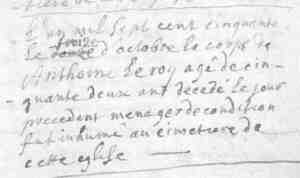 L'an mil Sept cent cinquante
Le treize d'octobre le corps de
Anthoine Le roy agé de cin-
-quante deux ans decedé le jour
precedent menager de condition
fut inhumé au cimetiere de
cette eglise